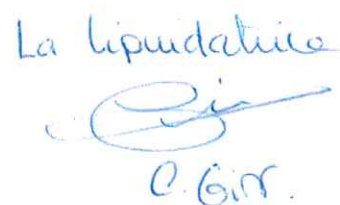 La liquidatrice
C. Gin.